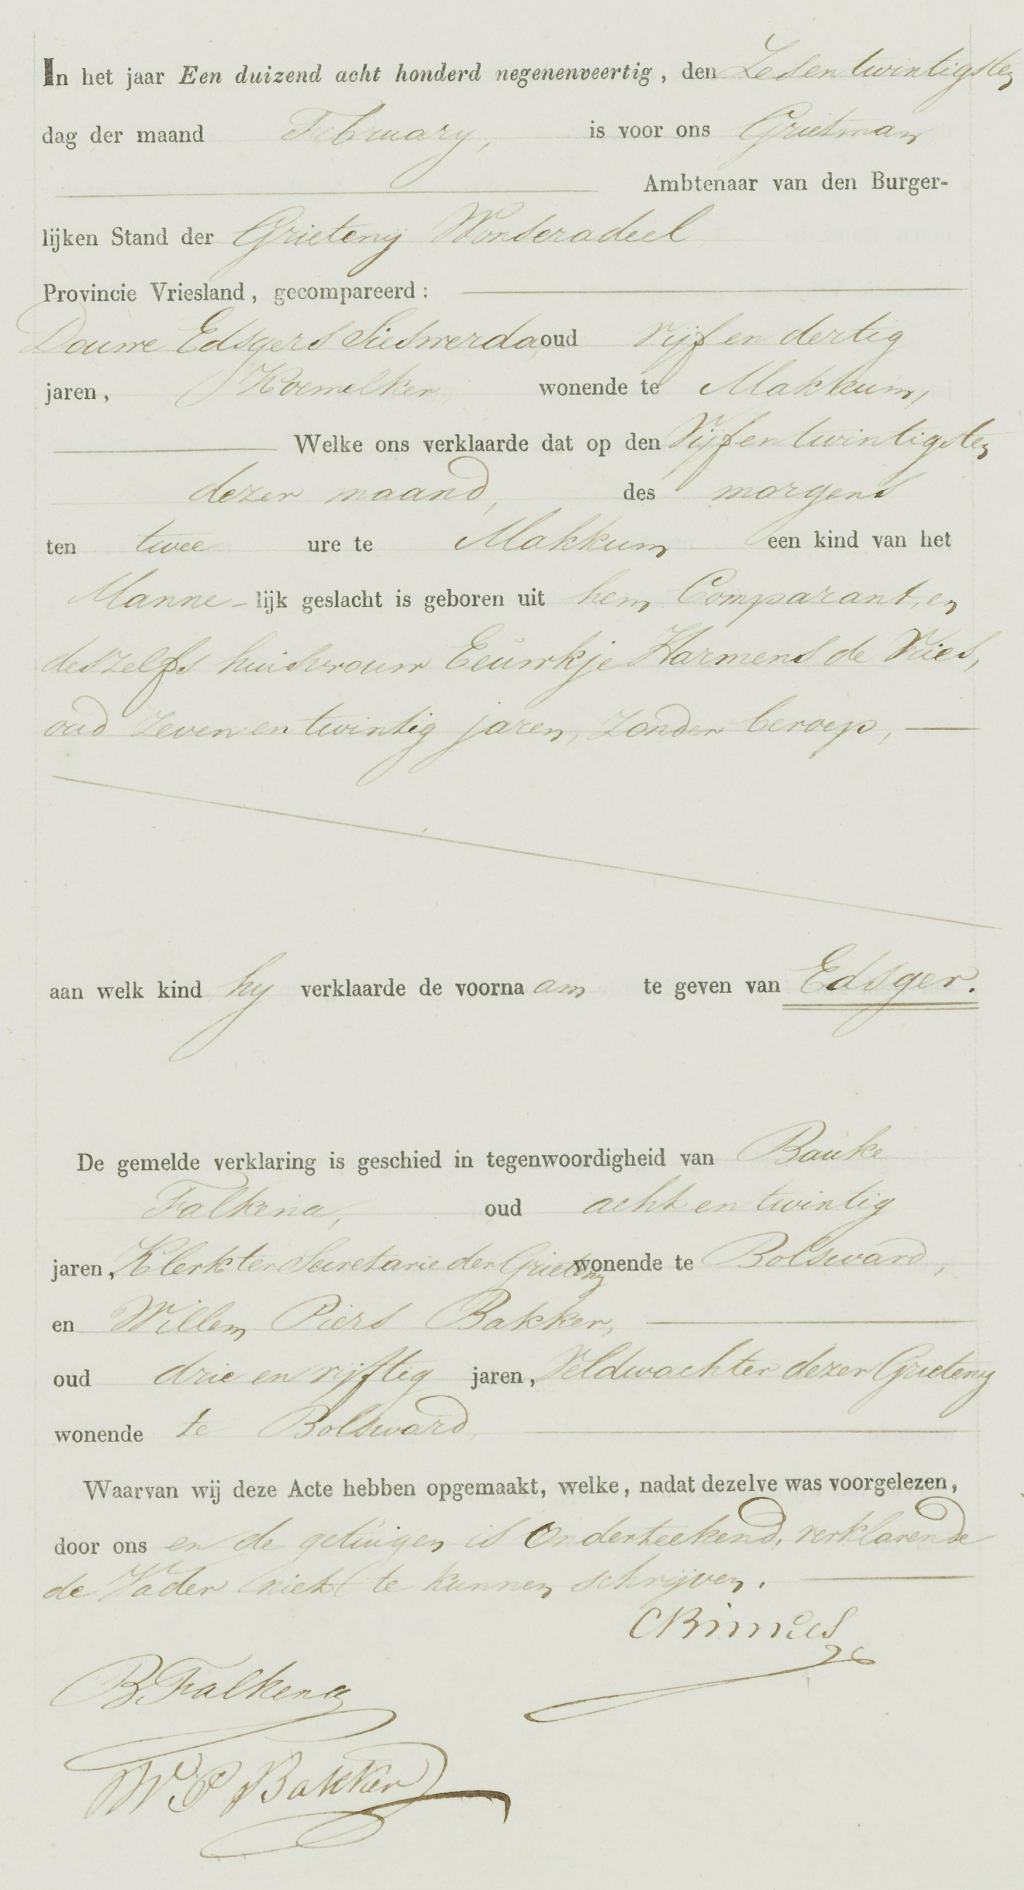 In het jaar Een duizend acht honderd negenenveertig, den Zesentwintigsten
dag der maand February, is voor ons Grietman
Ambtenaar van den Burger-
lijken Stand der Grieteny Wonseradeel
Provincie Vriesland, gecompareerd:
Douwe Edsgers Sieswerda oud vijf en dertig
jaren, Koemelker wonende te Makkum,
Welke ons verklaarde dat op den Vijfentwintigsten
dezer maand, des morgens
ten twee ure te Makkum een kind van het
Manne-lijk geslacht is geboren uit hem Comparant, en
deszelfs huisvrouw Eeuwkje Harmens de Vries,
oud zeven en twintig jaren, zonder beroep,
aan welk kind hy verklaarde de voornaam te geven van Edsger.
De gemelde verklaring is geschied in tegenwoordigheid van Bauke
Falkena, oud acht en twintig
jaren, Klerk ter Secretarie der Grieteny wonende te Bolsward,
en Willem Piers Bakker,
oud drie en vijftig jaren, Veldwachter dezer Grieteny
wonende te Bolsward,
Waarvan wij deze Acte hebben opgemaakt, welke, nadat dezelve was voorgelezen,
door ons en de getuigen is Onderteekend, verklarende
de Vader niet te kunnen schrijven.
B. Falkena
W P Bakker